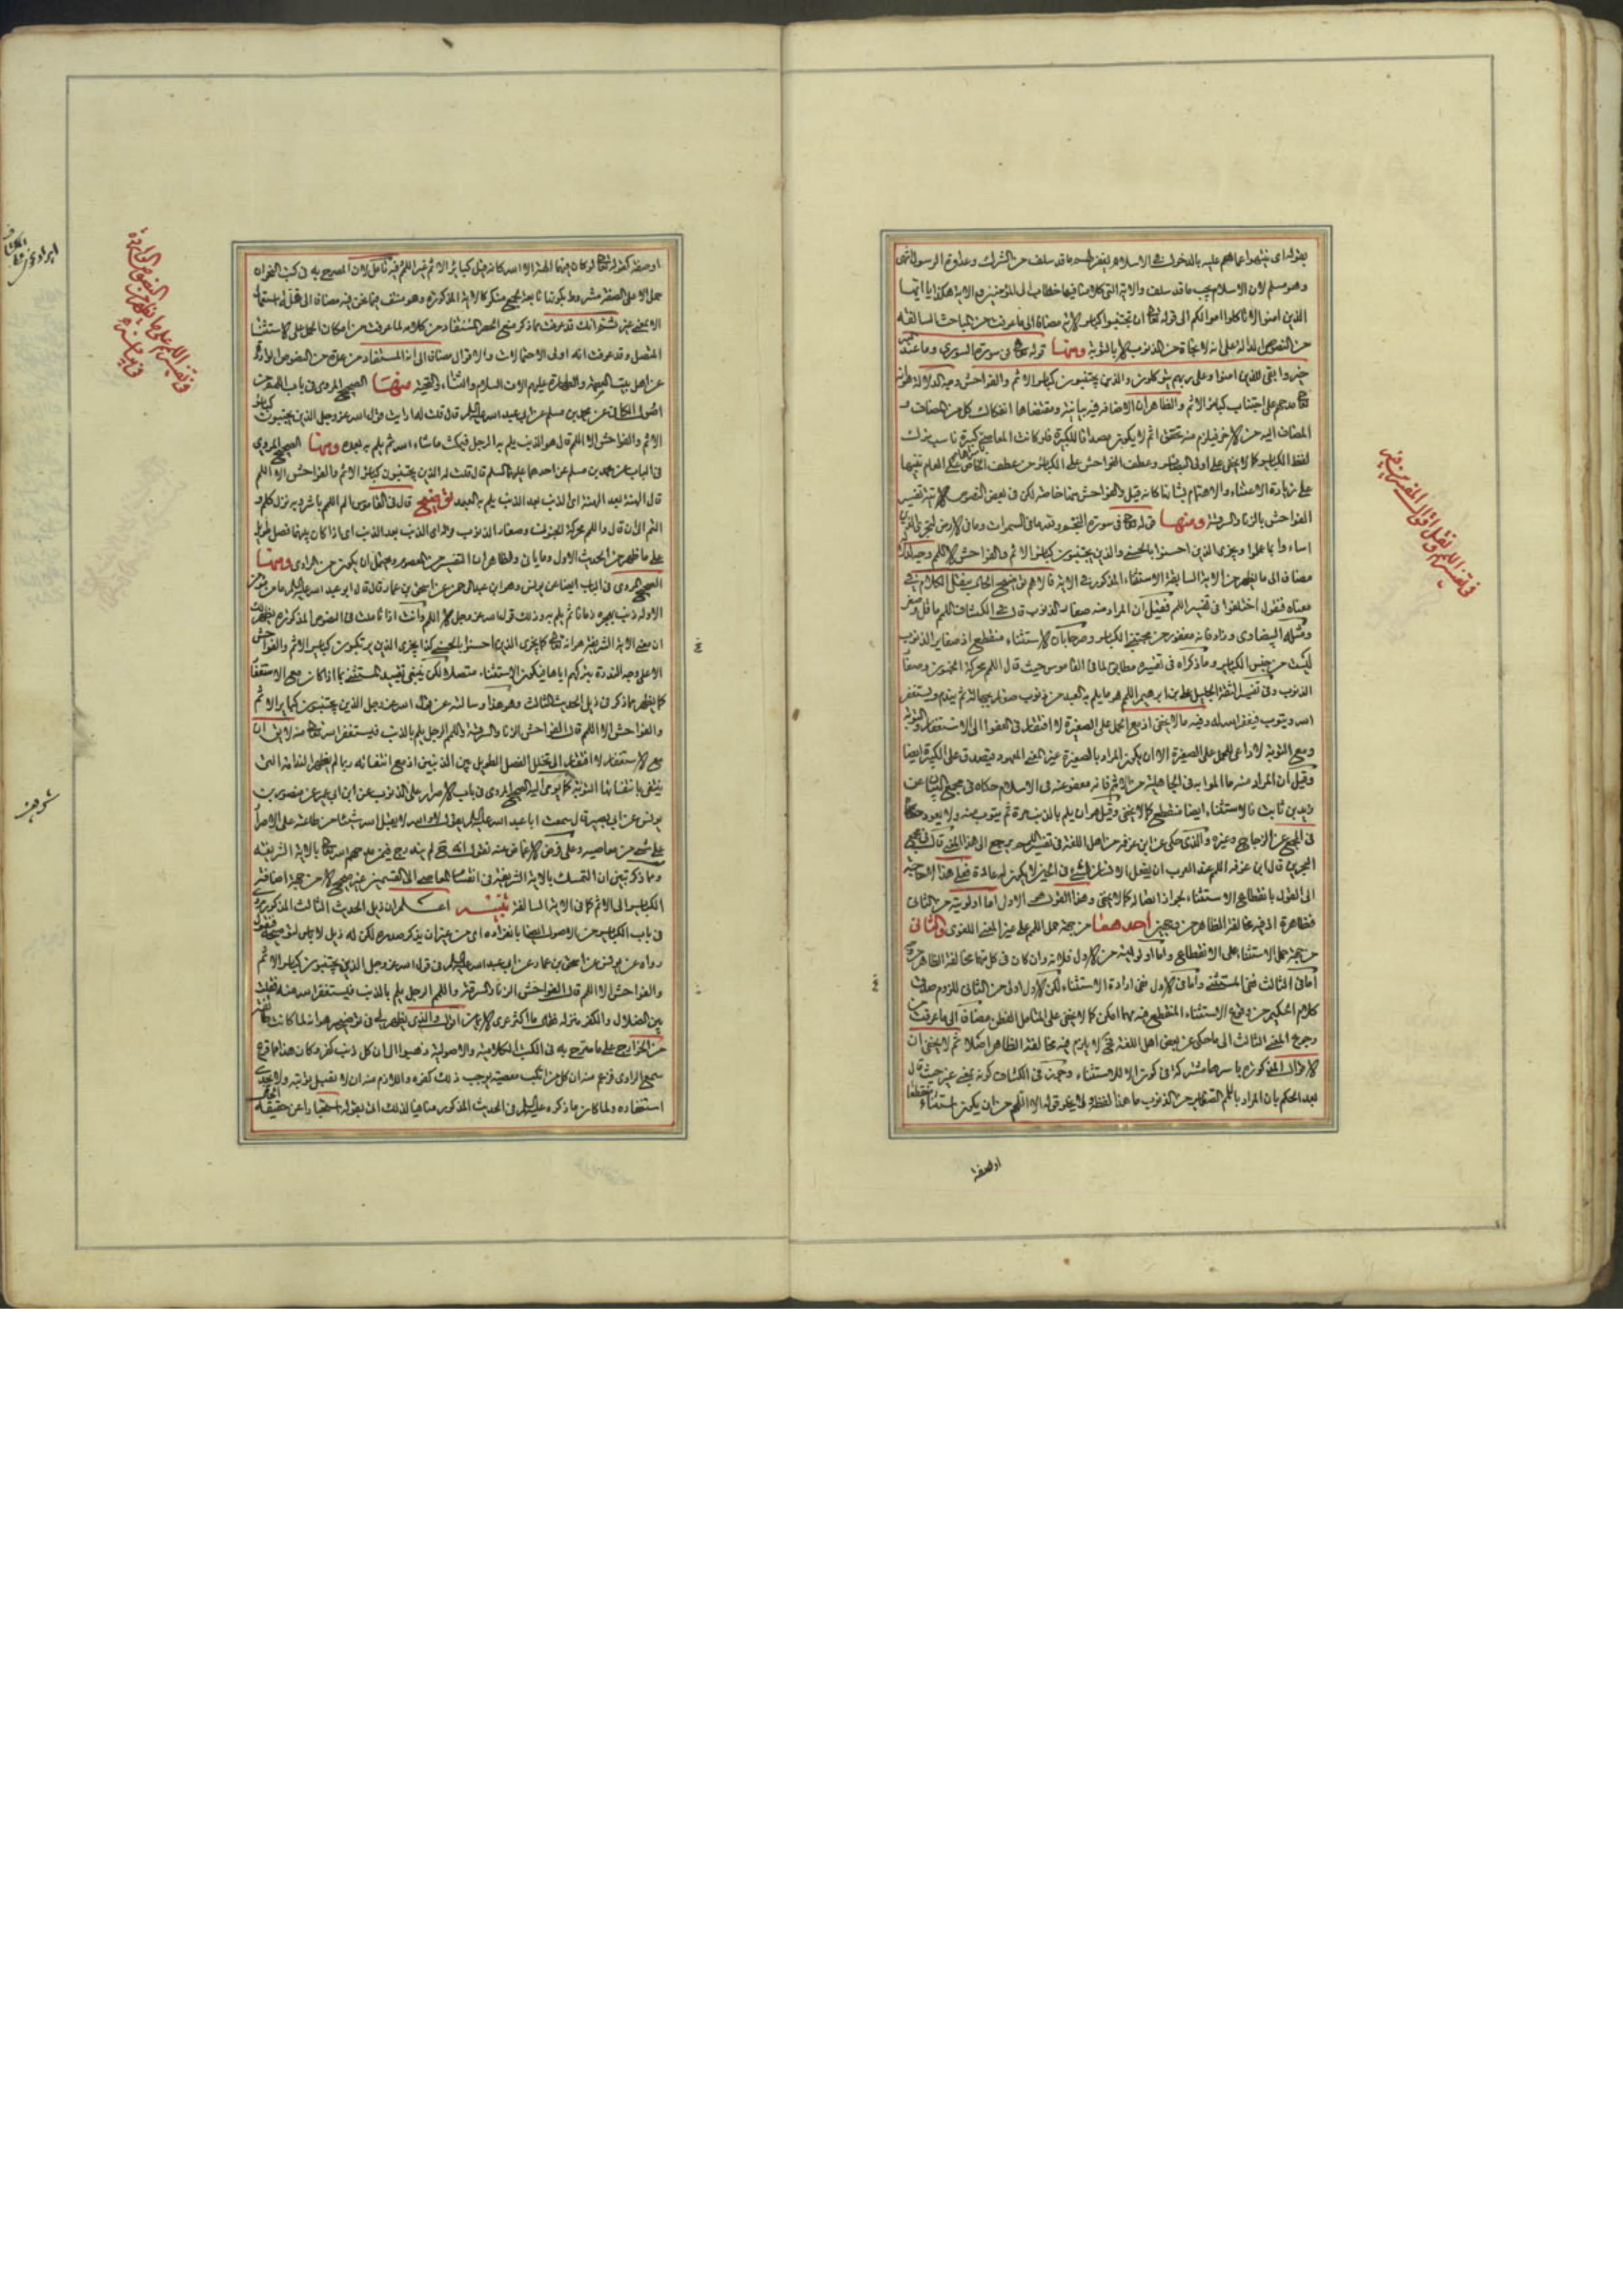 بقوله اى ينتهوا عما هم عليه بالدخول فى الاسلام يغفر لهم ما قد سلف من الشرك وعداوة الرسول انتهى
وهو مسلم لان الاسلام يجب ما قد سلف والاية التى كلامنا فيها خطاب الى المؤمنين فى الاية هكذا يا ايها
الذين امنوا لا تاكلوا اموالكم الى قوله تعالى ان تجتنبوا كبائر الاية مضافا الى ما عرفت من المباحث السالفة
من النصوص الدالة على انه لا نجاة من الذنوب الا بالتوبة ومنها قوله تعالى فى سورة الشورى وما عند الله
خير وابقى للذين امنوا وعلى ربهم يتوكلون والذين يجتنبون كبائر الاثم والفواحش وجه الدلالة
تعالى مدحهم على اجتناب كبائر الاثم والظاهر ان الاضافة فيه بيانية ومقتضاها انفكاك كل من المضاف و
المضاف اليه من الاخر فيلزم منه تحقق اثم لا يكون مصداقا للكبيرة فلو كانت المعاصى كبيرة ناسب ترك
لفظ الكبائر كما لا يخفى على اولى البصائر وعطف الفواحش على الكبائر من عطف الخاص على العام تنبيها
على زيادة الاعتناء والاهتمام بشانها كانه قيل والفواحش منها خاصة لكن فى بعض النصوص الاتية تفسير
الفواحش بالزنا والسرقة ومنها قوله تعالى فى سورة النجم ولله ما فى السموات وما فى الارض ليجزى الذين
اساءوا بما عملوا ويجزى الذين احسنوا بالحسنى والذين يجتنبون كبائر الاثم والفواحش الا اللمم وجه الدلالة
مضاف الى ما يظهر من الاية السابقة الاستثناء المذكور فى الاية فالاهم توضيح الحال ببسط الكلام فى
معناه فنقول اختلفوا فى تفسير اللمم فقيل ان المراد منه صغار الذنوب قال فى الكشاف اللمم ما قل وصغر
ومثله البيضاوى وزاد فانه مغفور من مجتنبى الكبائر وصرحا بان الاستثناء منقطع اذ صغاير الذنوب
ليست من جنس الكبائر وما ذكراه فى تفسيره مطابق لما فى القاموس حيث قال اللمم محركة الجنون وصغار
الذنوب وفى تفسير الثقة الجليل على بن ابرهيم اللمم هو ما يلم به العبد من ذنوب صغار بجهالة ثم يندم ويستغفر
الله ويتوب فيغفر الله له وفيه ما لا يخفى اذ مع الحمل على الصغيرة لا افتقار فى العفو الى الاستغفار والتوبة
ومع التوبة لا داعى للحمل على الصغيرة الا ان يكون المراد بالصغيرة غير المعنى المعهود فيصدق على الكبيرة ايضا
وقيل ان المراد منه ما الموا به فى الجاهلية من الاثم فانه معفو عنه فى الاسلام حكاه فى مجمع البيان عن
زيد بن ثابت فالاستثناء ايضا منقطع كما لا يخفى وقيل هو ان يلم بالذنب مرة ثم يتوب منه ولا يعود حكاه
فى المجمع عن الزجاج وغيره والذى حكى عن ابن عرفة من اهل اللغة فى تفسير اللمم يرجع الى هذا المعنى قال فى مجمع
البحرين قال ابن عرفة اللمم عند العرب ان يفعل الانسان الشىء فى الحين لا يكون له عادة فعلى هذا لا حاجة
الى القول بانقطاع الاستثناء لجواز اتصاله كما لا يخفى وهذا القول هو الاولى اما اولويته من الثانى
فظاهرة اذ فيه مخالفة الظاهر من وجهين احدهما من جهة حمل اللمم على غير المعنى اللغوى والثانى
من جهة حمل الاستثناء على الانقطاع واما اولويته من الاول فلانه وان كان فى كل منهما مخالفة الظاهر
اما فى الثالث ففى المستثنى واما فى الاول ففى ارادة الاستثناء لكن الاول اولى من الثانى للزوم صون
كلام الحكيم من وقوع الاستثناء المنقطع فيه مهما امكن كما لا يخفى على المتامل الفطن مضافا الى ما عرفت من
رجوع المعنى الثالث الى ما حكى عن بعض اهل اللغة فح لا يلزم فيه مخالفة الظاهر اصلا ثم لا يخفى ان
الاقوال المذكورة باسرها مشتركة فى كون الا للاستثناء وجوز فى الكشاف كونه بمعنى غير حيث قال
بعد الحكم بان المراد باللمم الصغاير من الذنوب ما هذا لفظه لا يخلو قوله الا اللمم من ان يكون استثناء منقطعا
فى تفسير اللمم ونقل اقوال المفسرين فيه
او صفة
او صفة كقوله تعالى لو كان فيهما الهة الا الله كانه قيل كبائر الاثم غير اللمم فيه تامل لان المصرح به فى كتب النحو ان
حمل الا على الصفة مشروط بكونها تابعة لجمع منكر كالاية المذكورة وهو منتف فيما نحن فيه مضافا الى قلة استعمال
الا بمعنى غير ثم انك قد عرفت مما ذكر منع الحصر المستفاد من كلامه لما عرفت من امكان الحمل على الاستثناء
المتصل وقد عرفت انه اولى الاحتمالات والاقوال مضافا الى انه المستفاد من عدة من النصوص الواردة
عن اهل بيت العصمة والطهارة عليهم الاف السلام والثناء والتحية منها الصحيح المروى فى باب اللمم من
اصول الكافى عن محمد بن مسلم عن ابى عبد الله عليه السلام قال قلت له ارايت قول الله عز وجل الذين يجتنبون كبائر
الاثم والفواحش الا اللمم قال هو الذنب يلم به الرجل فيمكث ما شاء الله ثم يلم به بعده ومنها الصحيح المروى
فى الباب عن محمد بن مسلم عن احدهما عليهما السلم قال قلت له الذين يجتنبون كبائر الاثم والفواحش الا اللمم
قال الهنة بعد الهنة اى الذنب بعد الذنب يلم به العبد توضيح قال فى القاموس الم اللمم باشر وبه نزل كلم و
التم الى ان قال واللمم محركة الجنون وصغار الذنوب وقوله اى الذنب بعد الذنب اى اذا كان بينهما فصل طويل
على ما ظهر من الحديث الاول وما ياتى والظاهر ان التفسير من المعصوم ويحتمل ان يكون من الراوى ومنها
الصحيح المروى فى الباب ايضا عن يونس وهو ابن عبد الرحمن عن اسحق بن عمار قال قال ابو عبد الله عليه السلم ما من مؤمن
الا وله ذنب يهجره زمانا ثم يلم به وذلك قول الله عز وجل الا اللمم وانت اذا تاملت فى النصوص المذكورة يظهر لك
ان معنى الاية الشريفة هو انه تعالى كما يجزى الذين احسنوا بالحسنى كذا يجزى الذين يرتكبون كبائر الاثم والفواحش
الا على وجه الندرة بتركهم اياها فيكون الاستثناء متصلا لكن ينبغى تقييد المستثنى بما اذا كان مع الاستغفار
كما يظهر مما ذكر فى ذيل الحديث الثالث وهو هذا وسالته عن قول الله عز وجل الذين يجتنبون كبائر الاثم
والفواحش الا اللمم قال الفواحش الزنا والسرقة واللمم الرجل يلم بالذنب فيستغفر الله تعالى منه لا يق ان
مع الاستغفار لا افتقار الى تخلل الفصل الطويل بين الذنبين اذ مع انتفائه ربما لم يظهر الندامة التى
ينتفى بانتفائها التوبة كما يومى اليه الصحيح المروى فى باب الاصرار على الذنوب عن ابن ابى عمير عن منصور بن
يونس عن ابى بصير قال سمعت ابا عبد الله عليه السلم يقول لا والله لا يقبل الله شيئا من طاعته على الاصرار
على شىء من معاصيه وعلى فرض الاغماض عنه نقول انه ح لم يندرج فيمن مدحهم الله تعالى بالاية الشريفة
ومما ذكر تبين ان التمسك بالاية الشريفة فى انقسام المعاصى الى القسمين غير صحيح الا من جهة اضافة
الكبائر الى الاثم كما فى الاية السالفة تنبيه اعلم ان ذيل الحديث الثالث المذكور مروى
فى باب الكبائر من الاصول ايضا بانفراده اى من غير ان يذكر صدره لكن له ذيل لا باس لتوضيحه فنقول
رواه عن يونس عن اسحق بن عمار عن ابى عبد الله عليه السلم فى قول الله عز وجل الذين يجتنبون كبائر الاثم
والفواحش الا اللمم قال الفواحش الزنا والسرقة واللمم الرجل يلم بالذنب فيستغفر الله منه قلت
بين الضلال والكفر منزلة فقال ما اكثر عرى الايمان اقول والذى يظهر لى فى توضيحه هو انه لما كانت طائفة
من الخوارج على ما صرح به فى الكتب الكلامية والاصولية ذهبوا الى ان كل ذنب كفر وكان هذا مما قرع
سمع الراوى فزعم منه ان كل من ارتكب معصية يوجب ذلك كفره واللازم منه ان لا تقبل توبته ولا يجدى
استغفاره ولما كان ما ذكره عليه السلم فى الحديث المذكور منافيا لذلك اتى بقوله استخبارا عن حقيقة الحال
فى تفسير اللمم على ما يظهر من النصوص الواردة